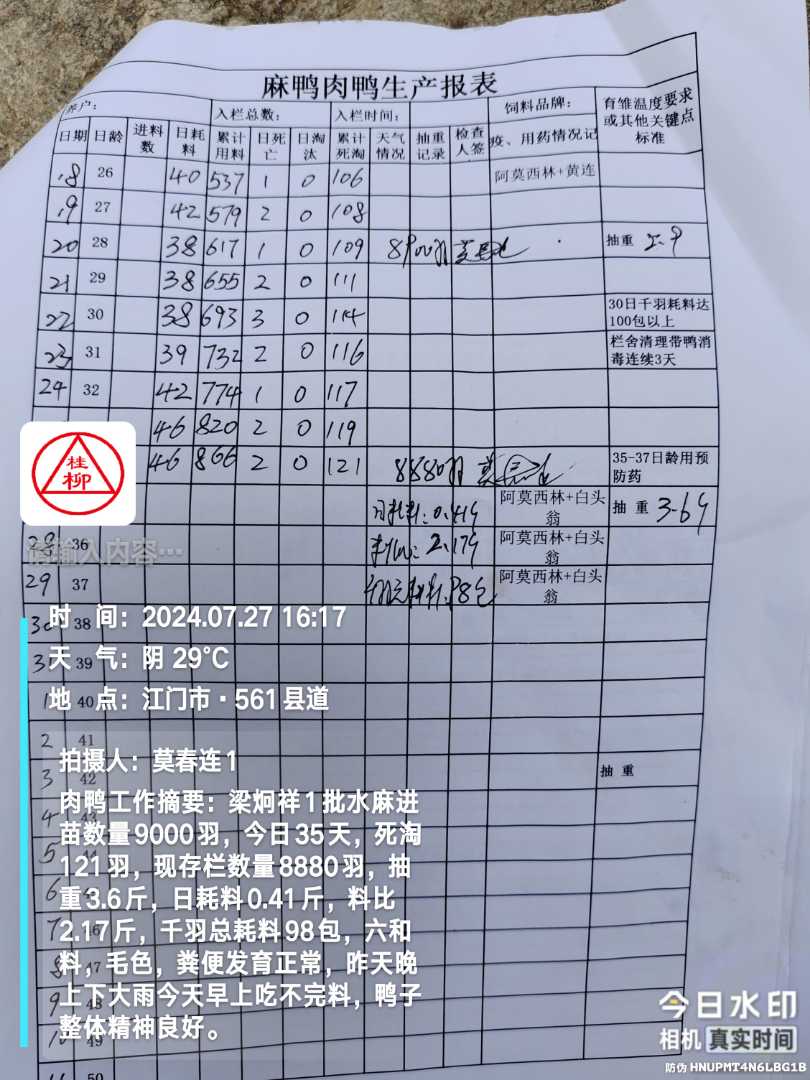 麻鸭肉鸭生产报表
养户： 入栏总数： 入栏时间： 饲料品牌： 育雏温度要求或其他关键点标准
日期 日龄 进料数 日耗料 累计用料 日死亡 日淘汰 累计死淘 天气情况 抽重记录 检查人签 疫、用药情况记
18 26 40 537 1 0 106 阿莫西林+黄连
19 27 42 579 2 0 108
20 28 38 617 1 0 109 8900羽 抽重
21 29 38 655 2 0 111
22 30 38 693 3 0 114 30日千羽耗料达100包以上
23 31 39 732 2 0 116 栏舍清理带鸭消毒连续3天
24 32 42 774 1 0 117
46 820 2 0 119
46 866 2 0 121 8880羽 35-37日龄用预防药
日耗料：0.41 阿莫西林+白头翁 抽重 3.6
28 36 2.17 阿莫西林+白头翁
29 37 98包 阿莫西林+白头翁
30 38
39
1 40
2 41
3 42 抽重
4
5
6
7
8 47
9 48
10 49
50
桂柳
请输入内容…
时 间：2024.07.27 16:17
天 气：阴 29℃
地 点：江门市·561县道
拍摄人：莫春连1
肉鸭工作摘要：梁炯祥1批水麻进
苗数量9000羽，今日35天，死淘
121羽，现存栏数量8880羽，抽
重3.6斤，日耗料0.41斤，料比
2.17斤，千羽总耗料98包，六和
料，毛色，粪便发育正常，昨天晚
上下大雨今天早上吃不完料，鸭子
整体精神良好。
今日水印
相机 真实时间
防伪 HNUPMT4N6LBG1B